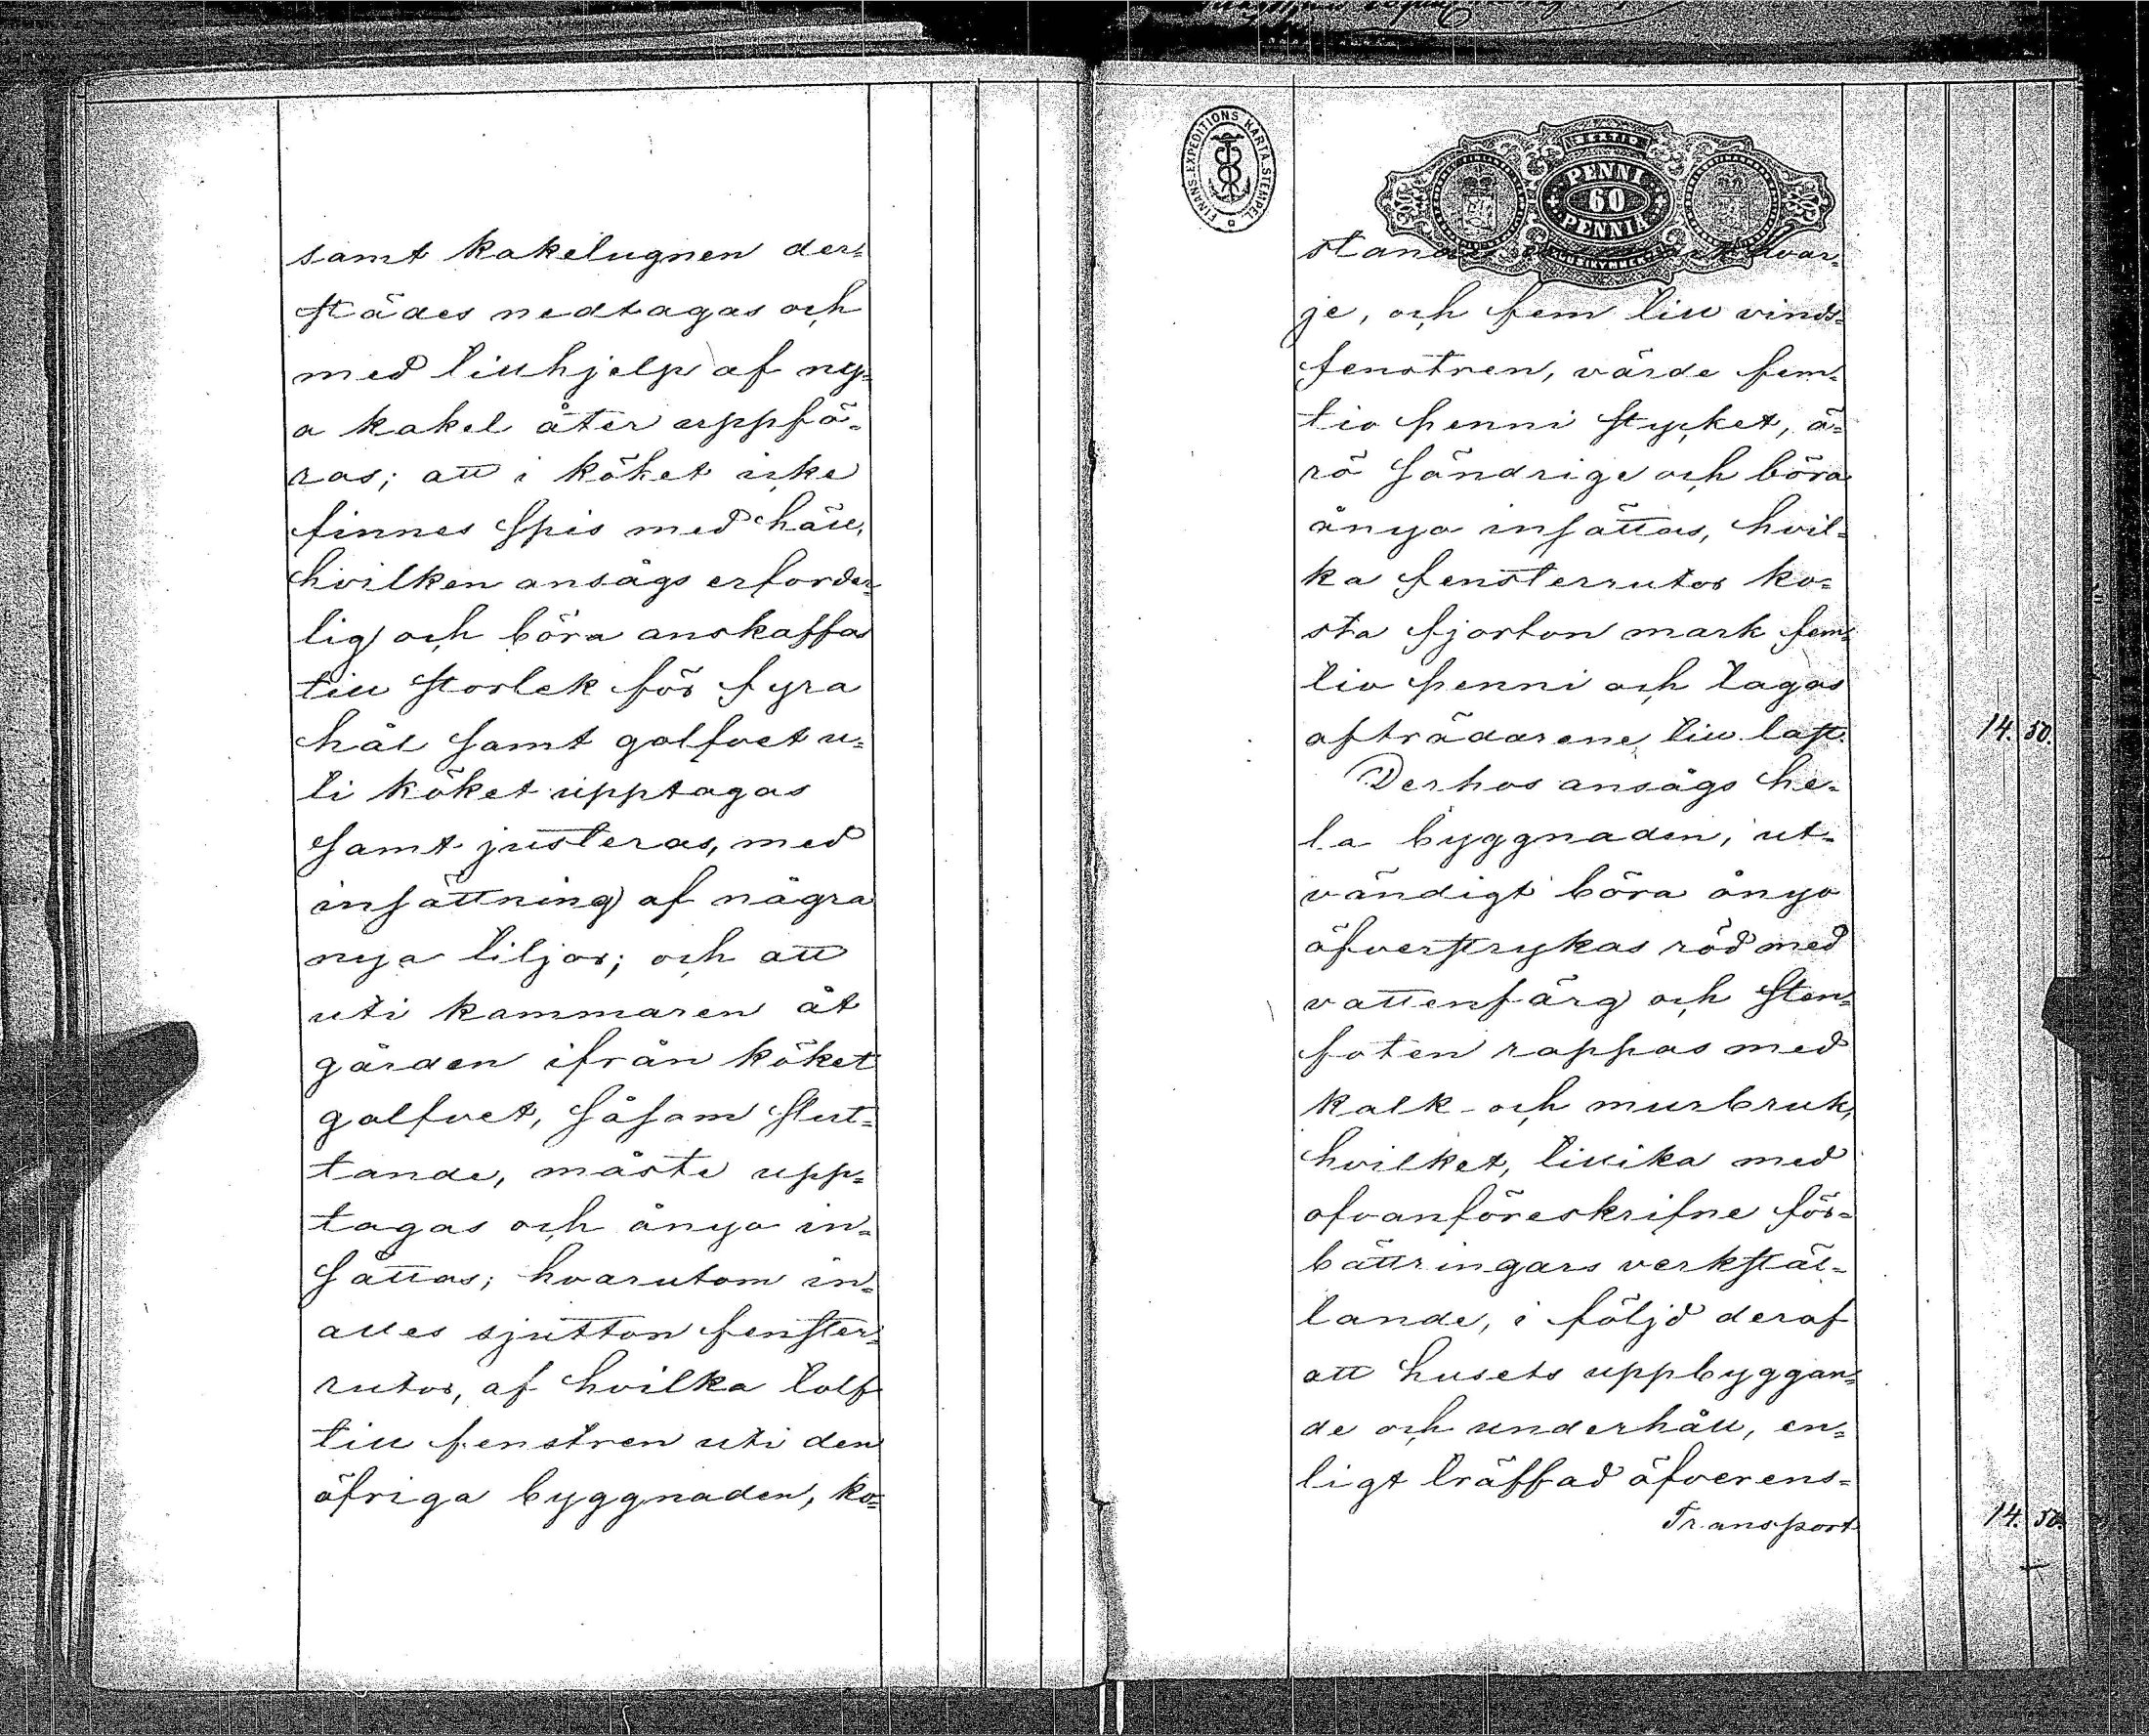 samt kakelugnen der-
städes nedtagas och
med tillhjelp af ny-
a kakel åter uppfö-
ras; att i köket icke
finnes spis med häll,
hvilken ansågs erforder-
lig och böra anskaffas
till storlek för fyra
hål samt golfvet u-
ti köket upptagas
samt justeras, med
insättning af några
nya tiljor; och att
uti kammaren åt
gården ifrån köket
golfvet, såsom slut-
tande, måste upp-
tagas och ånyo in-
sättas; hvarutom in-
alles sjutton fenster-
rutor, af hvilka tolf
till fenstren uti den
öfriga byggnaden, ko-
FINANS-EXPEDITIONS KARTA-STEMPEL
PENNI
60
PENNIÄ
hvar-
je, och fem till vinds-
fenstren, värde fem-
tio penni stycket, ä-
ro söndrige och böra
ånyo insättas, hvil-
ka fensterrutor ko-
sta fjorton mark fem-
tio penni och tagas
afträdarene till last. 14. 50.
Derhos ansågs he-
la byggnaden, ut-
vändigt böra ånyo
öfverstrykas röd med
vattenfärg och sten-
foten rappas med
kalk- och murbruk,
hvilket, tillika med
ofvanföreskrifne för-
bättringars verkstäl-
lande, i följd deraf
att husets uppbyggan-
de och underhåll, en-
ligt träffad öfverens-
Transport 14. 50.